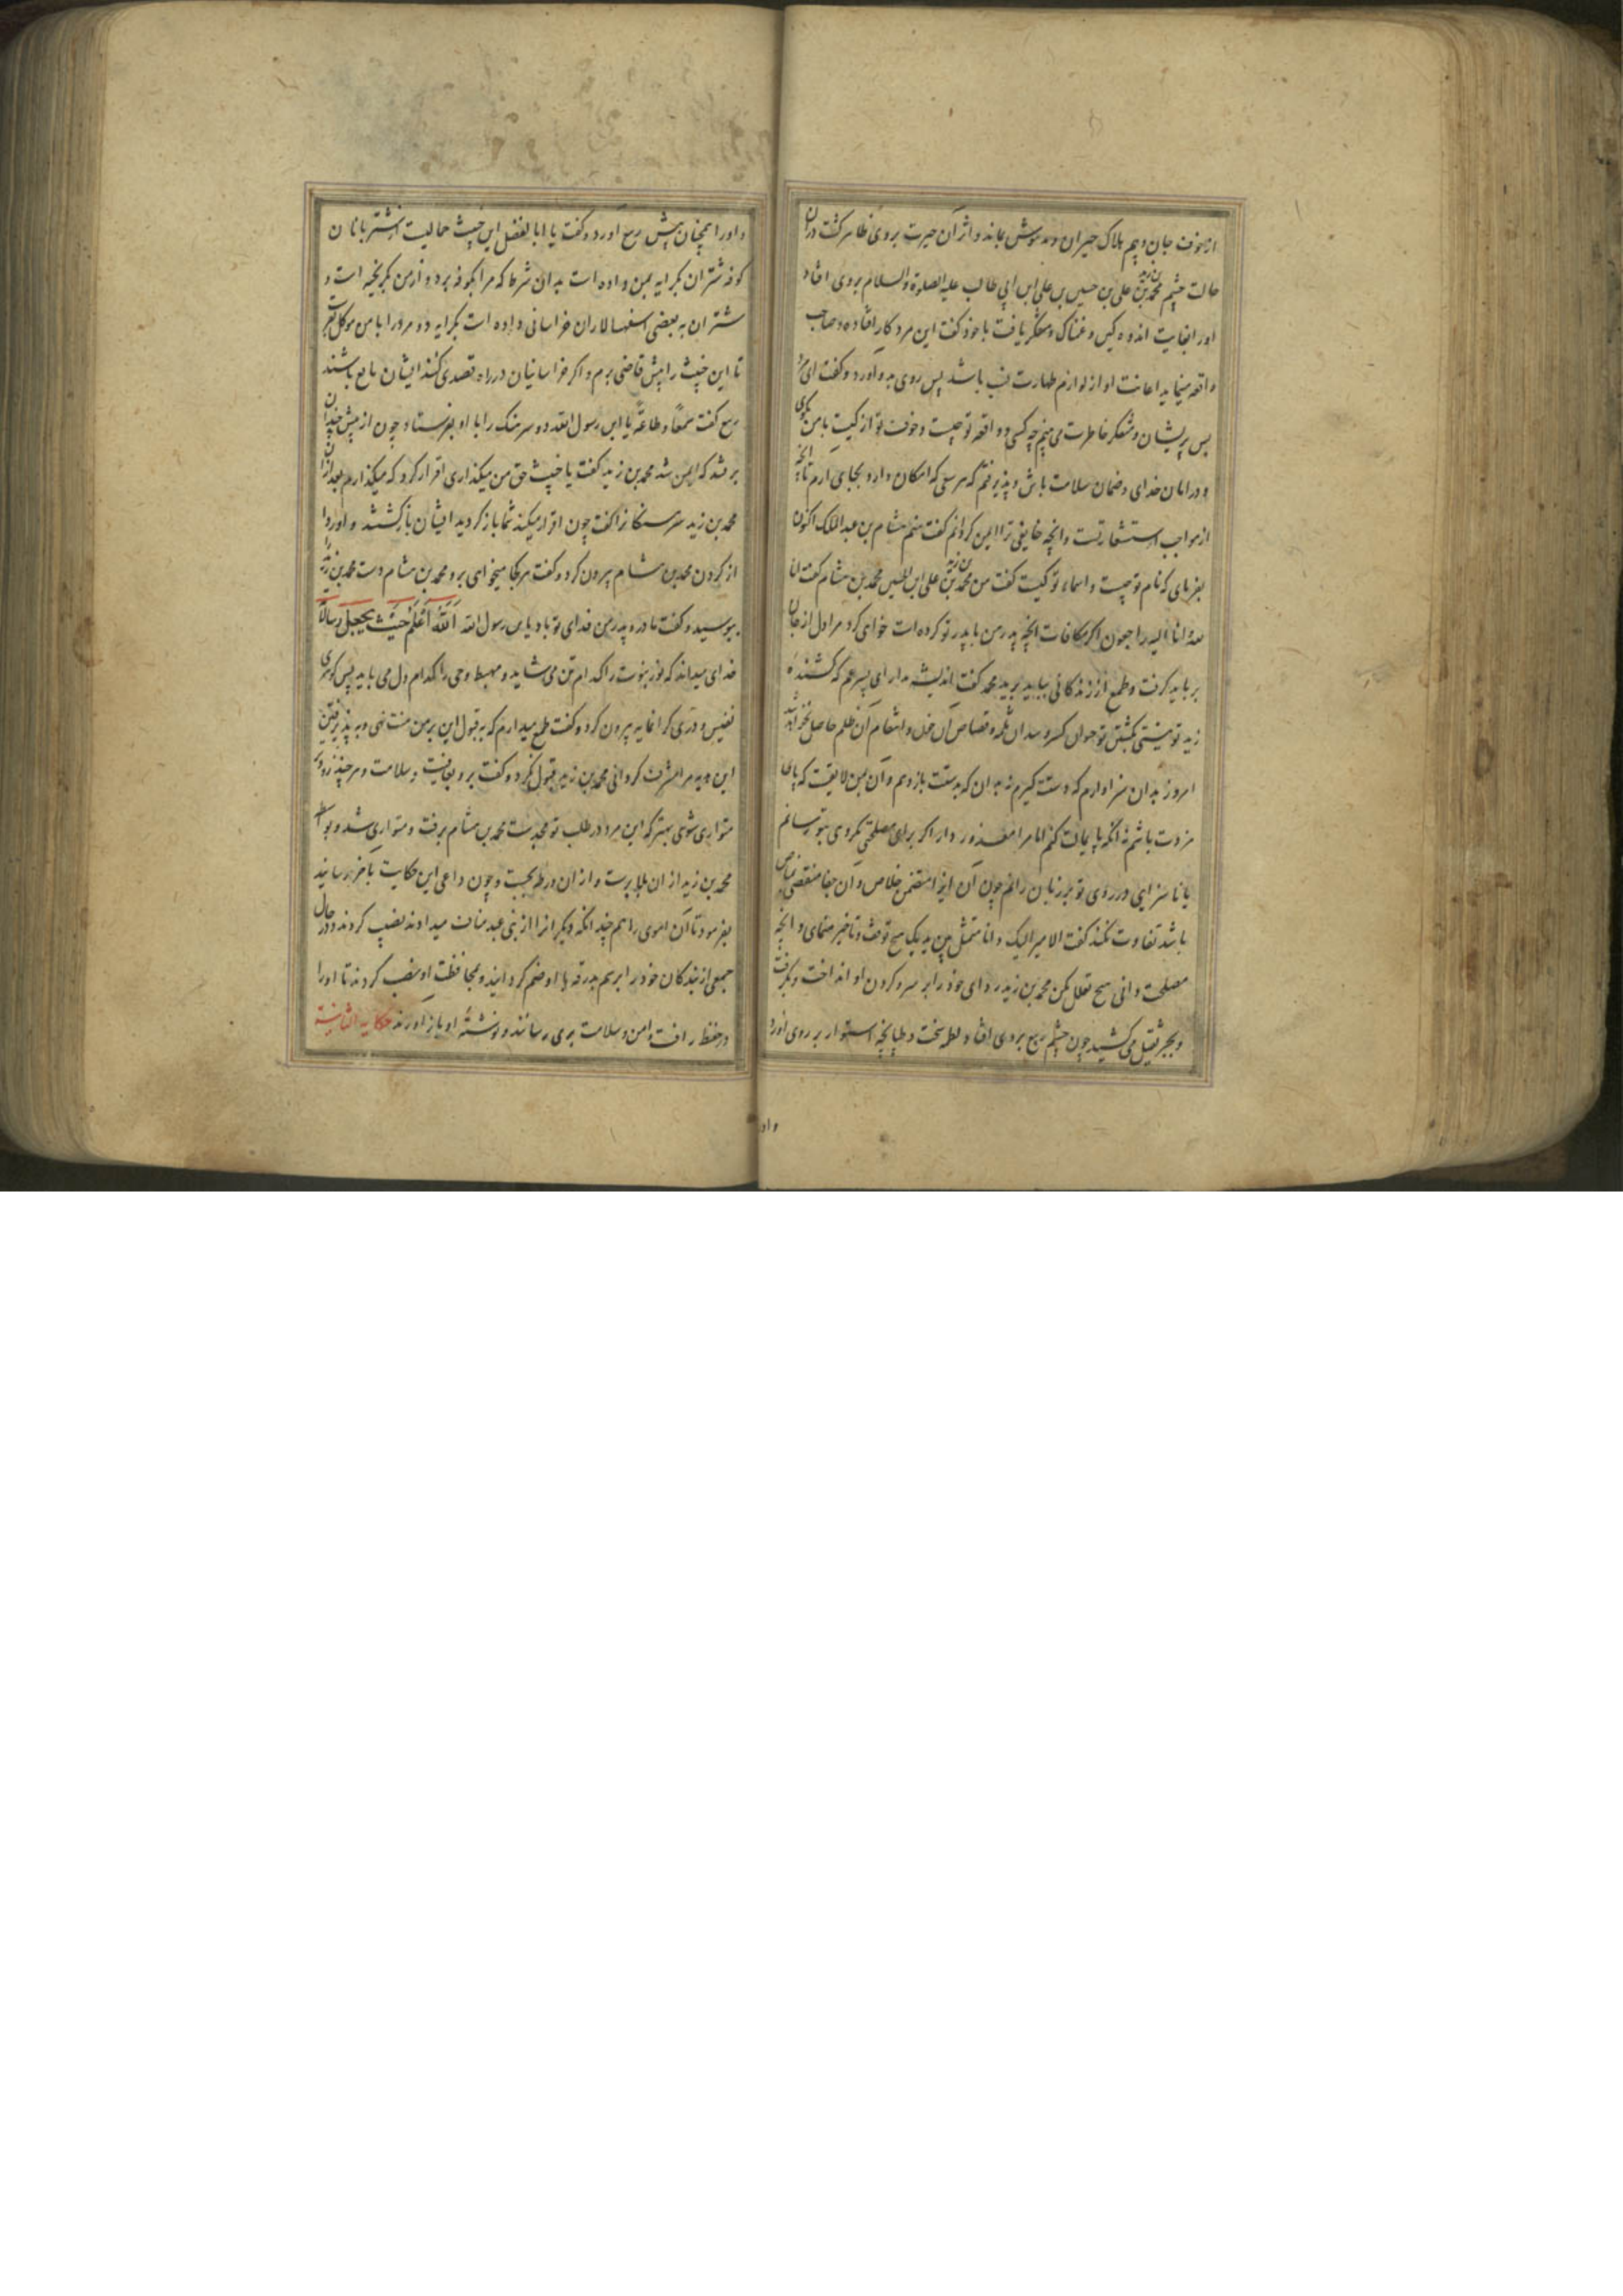 از خوف جان و بیم هلاک حیران و مدهوش بماند و اثر آن حیرت بر وی ظاهر کشت دران
حالت چشم محمد بن زید بن علی بن حسین بن علی ابن ابی طالب علیه الصلوة والسلام بر وی افتاد
اورا بغایت اندوه کین و غمناک و متفکر یافت با خود کفت این مرد کار افتاده و صاحب
واقعه مینماید اعانت او از لوازم طهارت نسب باشد پس روی بدو آورد و کفت ای مرد
بس پریشان و متفکر خاطرت می بینم چه کسی و واقعه تو چیست و خوف تو از کیست با من بکوی
و در امان خدای و ضمان سلامت باش و پذیرفتم که هر سعی که امکان دارد بجای ارم تا انچه
از مواجب استشعار تست و انچه خایفی ترا ایمن کردانم کفت منم هشام بن عبد الملک اکنون
بفرمای که نام تو چیست و اسماء تو کیست کفت من محمد بن زید بن علی ابن الحسین محمد بن هشام کفت انا
لله و انا الیه راجعون اکر مکافات انچه پدر من با پدر تو کرده است خواهی کرد مرا دل از جان
بر باید کرفت و طمع از زندکانی بباید برید محمد کفت اندیشه مدار ای پسر عم که کشنده
زید تو نیستی بکشتن تو جبران کسر و سد آن ثلمه و قصاص آن خون و انتقام آن ظلم حاصل نخواهد شد
امروز بدان سزاوارم که دستت کیرم نه بدان که بدستت باز دهم و آن بمن لایقست که پای
مزدت باشم نه انکه پایمالت کنم اما مرا معذور دار اکر برای مصلحتی مکروهی بتو رسانم
یا ناسزایی در روی تو بر زبان رانم چون آن ایذا متضمن خلاص و آن جفا مقتضی مناص
باشد تفاوت نکند کفت الامر الیک و انا متمثل بین یدیک هیچ توقف و تاخیر منمای و انچه
مصلحت دانی هیچ تعلل مکن محمد بن زید ردای خود را بر سر و کردن او انداخت و بکرفت
و بجر ثقیل می کشید چون چشم ربیع بر وی افتاد لطمه سخت و طپانچه استوار بر روی او زد
واو
و اورا همچنان پیش ربیع آورد و کفت یا ابا الفضل این خبیث حمالیست از شتر بانان
کوفه شتران بکرایه بمن داده است بدان شرط که مرا بکوفه برد و از من بکریخته است و
شتران به بعضی اسفهسالاران خراسانی داده است بکرایه دو مرد را با من موکل بفرست
تا این خبیث را پیش قاضی برم و اکر خراسانیان در راه قصدی کنند ایشان مانع باشند
ربیع کفت سمعا و طاعة یا ابن رسول الله دو سرهنک را با او بفرستاد چون از پیش چندان
بر فتند که ایمن شد محمد بن زید کفت یا خبیث حق من میکذاری اقرار کرد که میکذارم بعد ازان
محمد بن زید سرهنکانرا کفت چون اقرار میکند شما باز کردید ایشان باز کشتند و او ردا را
از کردن محمد بن هشام بیرون کرد و کفت هر کجا میخواهی برو محمد بن هشام دست محمد بن زید
ببوسید و کفت مادر و پدر من فدای تو باد یا ابن رسول الله اَللّٰهُ اَعْلَمُ حَیْثُ یَجْعَلُ رِسَالَتَهُ
خدای میداند که نور نبوت را کدام تن می شاید و مهبط وحی را کدام دل می باید پس کوهری
نفیس و دری کرانمایه بیرون کرد و کفت طمع میدارم که بقبول این بر من منت نهی و به پذیرفتن
این هدیه مرا مشرف کردانی محمد بن زید قبول نکرد و کفت برو بعافیت و سلامت و هر چند زودتر
متواری شوی بهتر که این مرد در طلب تو مجد ست محمد بن هشام برفت و متواری شد و بواسطه
محمد بن زید از ان بلا برست و از ان ورطه بجست و چون داعی این حکایت باخر رسانید
بفرمود تا آن اموی را هم چندانکه دیکرانرا از بنی عبد مناف میدادند نصیب کردند و در حال
جمعی از بندکان خود را برسم بدرقه با او ضم کردانید و بمحافظت او نصب کردند تا اورا
در حفظ رافت و امن و سلامت بری رسانند و نوشتۀ او باز آورند حکایه الثانیة